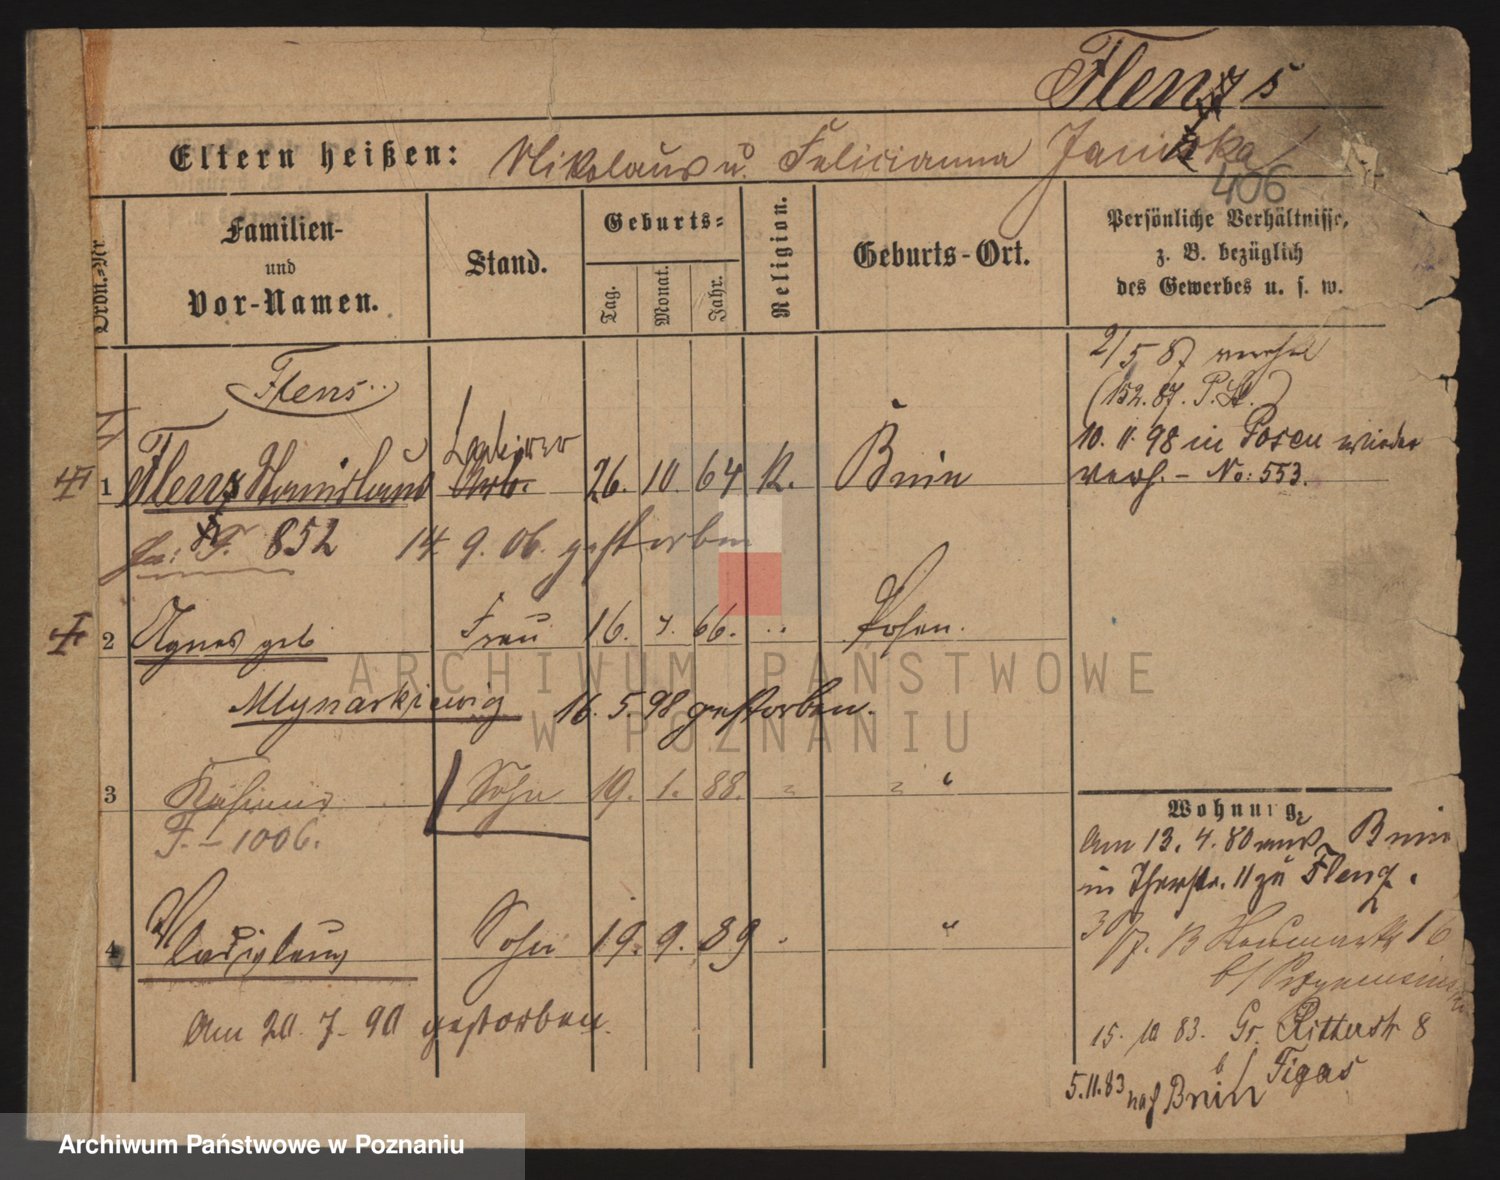 Flens
Eltern heißen: Nikolaus u. Felicianna Janiska
406
Ordn.=Nr.
Familien-
und
Vor-Namen.
Stand.
Geburts=
Tag.
Monat.
Jahr.
Religion.
Geburts-Ort.
Persönliche Verhältnisse,
z. B. bezüglich
des Gewerbes u. s. w.
Flens
2/5 87 verehel
(152. 87. P. St.)
10. 11. 98 in Posen wieder
vereh. - No: 553.
1 Flens Stanislaus Lackierer Arb. 26. 10. 64 K. Bnin
F. 852 14. 9. 06. gestorben
2 Agnes geb Frau 16. 66. " Posen.
Mlynarkiewig 16. 5. 98 gestorben.
3 Kasimir Sohn 19. 1. 88. " " "
F. - 1006.
4 Wladislaus Sohn 19. 9. 89 " "
Am 20. 7. 90 gestorben.
Wohnung.
Am 13. 4. 80 aus Bnin
in 11 zu Flens.
30/7. B Neumarkt 16
b/
15. 10 83. Gr. Ritterstr 8
b/ Figas
5. 11. 83 nach Bnin
ARCHIWUM PAŃSTWOWE
W POZNANIU
Archiwum Państwowe w Poznaniu